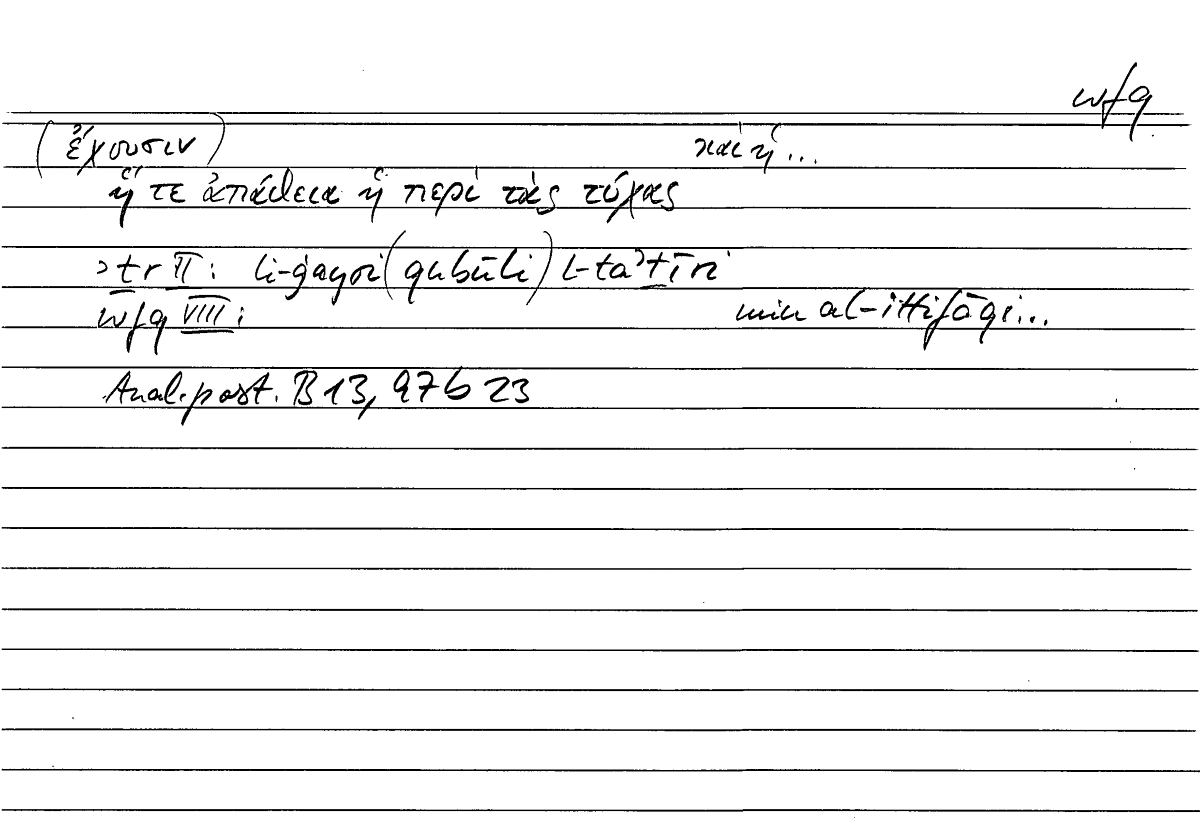 wfq
(ἔχουσιν) καὶ ἡ...
ἥ τε ἀπάθεια ἡ περὶ τὰς τύχας
ʾṯr II: li-ġayri (qubūli) l-taʾṯīri
wfq VIII: min al-ittifāqi...
Anal. post. B 13, 97 b 23